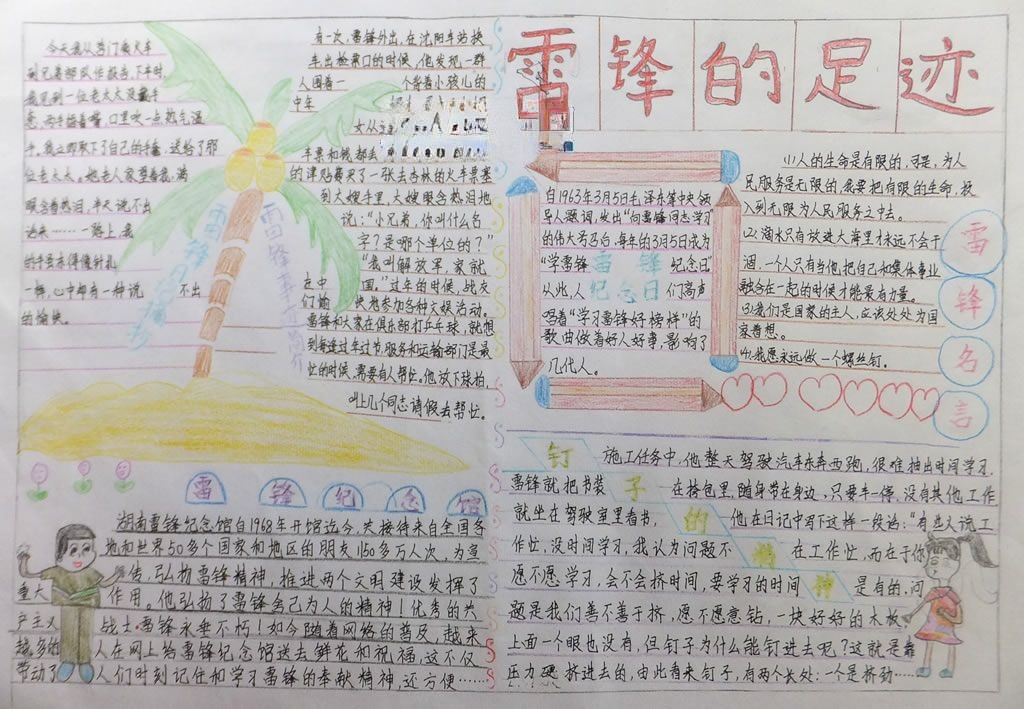 雷锋的足迹
今天我从营门乘火车
到兄弟部队作报告,下车时,
我见到一位老太太没戴手
套,两手捂着嘴,口里吹一点热气温
手。我立即取下了自己的手套,送给了那
位老太太。她老人家望着我,满
眼含着热泪,半天说不出
话来……一路上,我
的手虽冻得像针扎
一样,心中却有一种说 不出
的愉快。
雷锋日记摘抄
雷锋事迹简介
有一次,雷锋外出,在沈阳车站换
车出检票口的时候,他发现一群
人围着一 个背着小孩儿的
中年
女从
车票和钱都丢
的津贴费买了一张去吉林的火车票塞
到大嫂手里,大嫂眼含热泪地
说:“小兄弟,你叫什么名
字?是哪个单位的?”
“我叫解放军,家就
在中 国。”过年的时候,战友
们愉 快地参加各种文娱活动。
雷锋和大家在俱乐部打乒乓球,就想
到每逢过年过节,服务和运输部门是最
忙的时候,需要有人帮忙。他放下球拍,
叫上几个同志请假去帮忙。
自1963年3月5日毛泽东等中央领
导人题词,发出“向雷锋同志学习”
的伟大号召后,每年的3月5日成为
“学雷锋 雷锋 纪念日”
从此,人 纪念日 们高声
唱着“学习雷锋好榜样”的
歌曲做着好人好事,影响了
几代人。
(1)人的生命是有限的,可是,为人
民服务是无限的,我要把有限的生命,投
入到无限为人民服务之中去。
(2)滴水只有放进大海里才永远不会干
涸,一个人只有当他把自己和集体事业
融合在一起的时候才能最有力量。
(3)我们是国家的主人,应该处处为国
家着想。
(4)我愿永远做一个螺丝钉。
雷锋名言
雷锋纪念馆
湖南雷锋纪念馆自1968年开馆迄今,共接待来自全国各
地和世界50多个国家和地区的朋友1150多万人次,为宣
传,弘扬雷锋精神,推进两个文明建设发挥了
重大 作用。他弘扬了雷锋舍己为人的精神!优秀的共
产主义 战士雷锋永垂不朽!如今随着网络的普及,越来
越多的 人在网上给雷锋纪念馆送去鲜花和祝福,这不仅
带动了 人们时刻记住和学习雷锋的奉献精神,还方便……
钉子的精神
施工任务中,他整天驾驶汽车东奔西跑,很难抽出时间学习,
雷锋就把书装 在挎包里,随身带在身边,只要车一停,没有其他工作,
就坐在驾驶室里看书, 他在日记中写下这样一段话:“有些人说工
作忙,没时间学习,我认为问题不 在工作忙,而在于你
愿不愿学习,会不会挤时间,要学习的时间 是有的,问
题是我们善不善于挤,愿不愿意钻,一块好好的木板,
上面一个眼也没有,但钉子为什么能钉进去呢?这就是靠
压力硬 挤进去的,由此看来钉子,有两个长处:一个是挤劲……